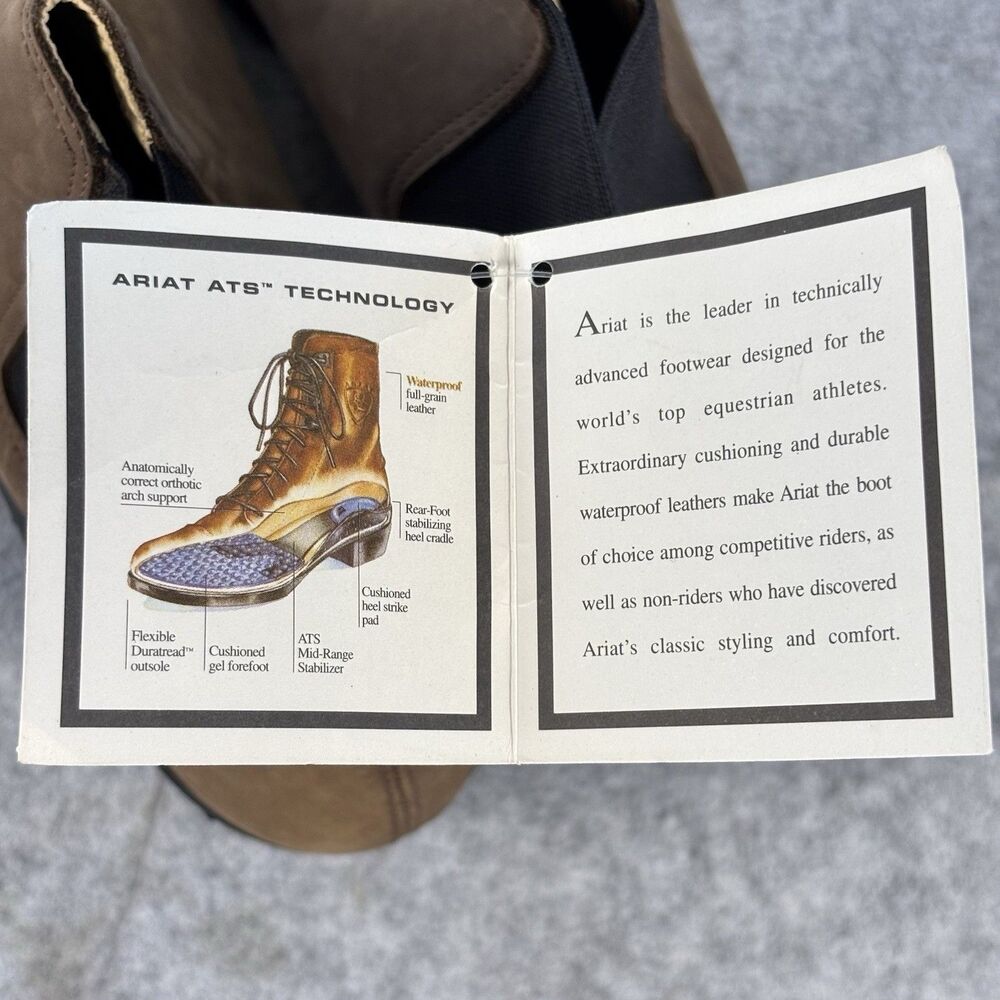 ARIAT ATS™ TECHNOLOGY
Waterproof
full-grain
leather
Anatomically
correct orthotic
arch support
Rear-Foot
stabilizing
heel cradle
Cushioned
heel strike
pad
Flexible
Duratread™
outsole
Cushioned
gel forefoot
ATS
Mid-Range
Stabilizer
Ariat is the leader in technically
advanced footwear designed for the
world's top equestrian athletes.
Extraordinary cushioning and durable
waterproof leathers make Ariat the boot
of choice among competitive riders, as
well as non-riders who have discovered
Ariat's classic styling and comfort.